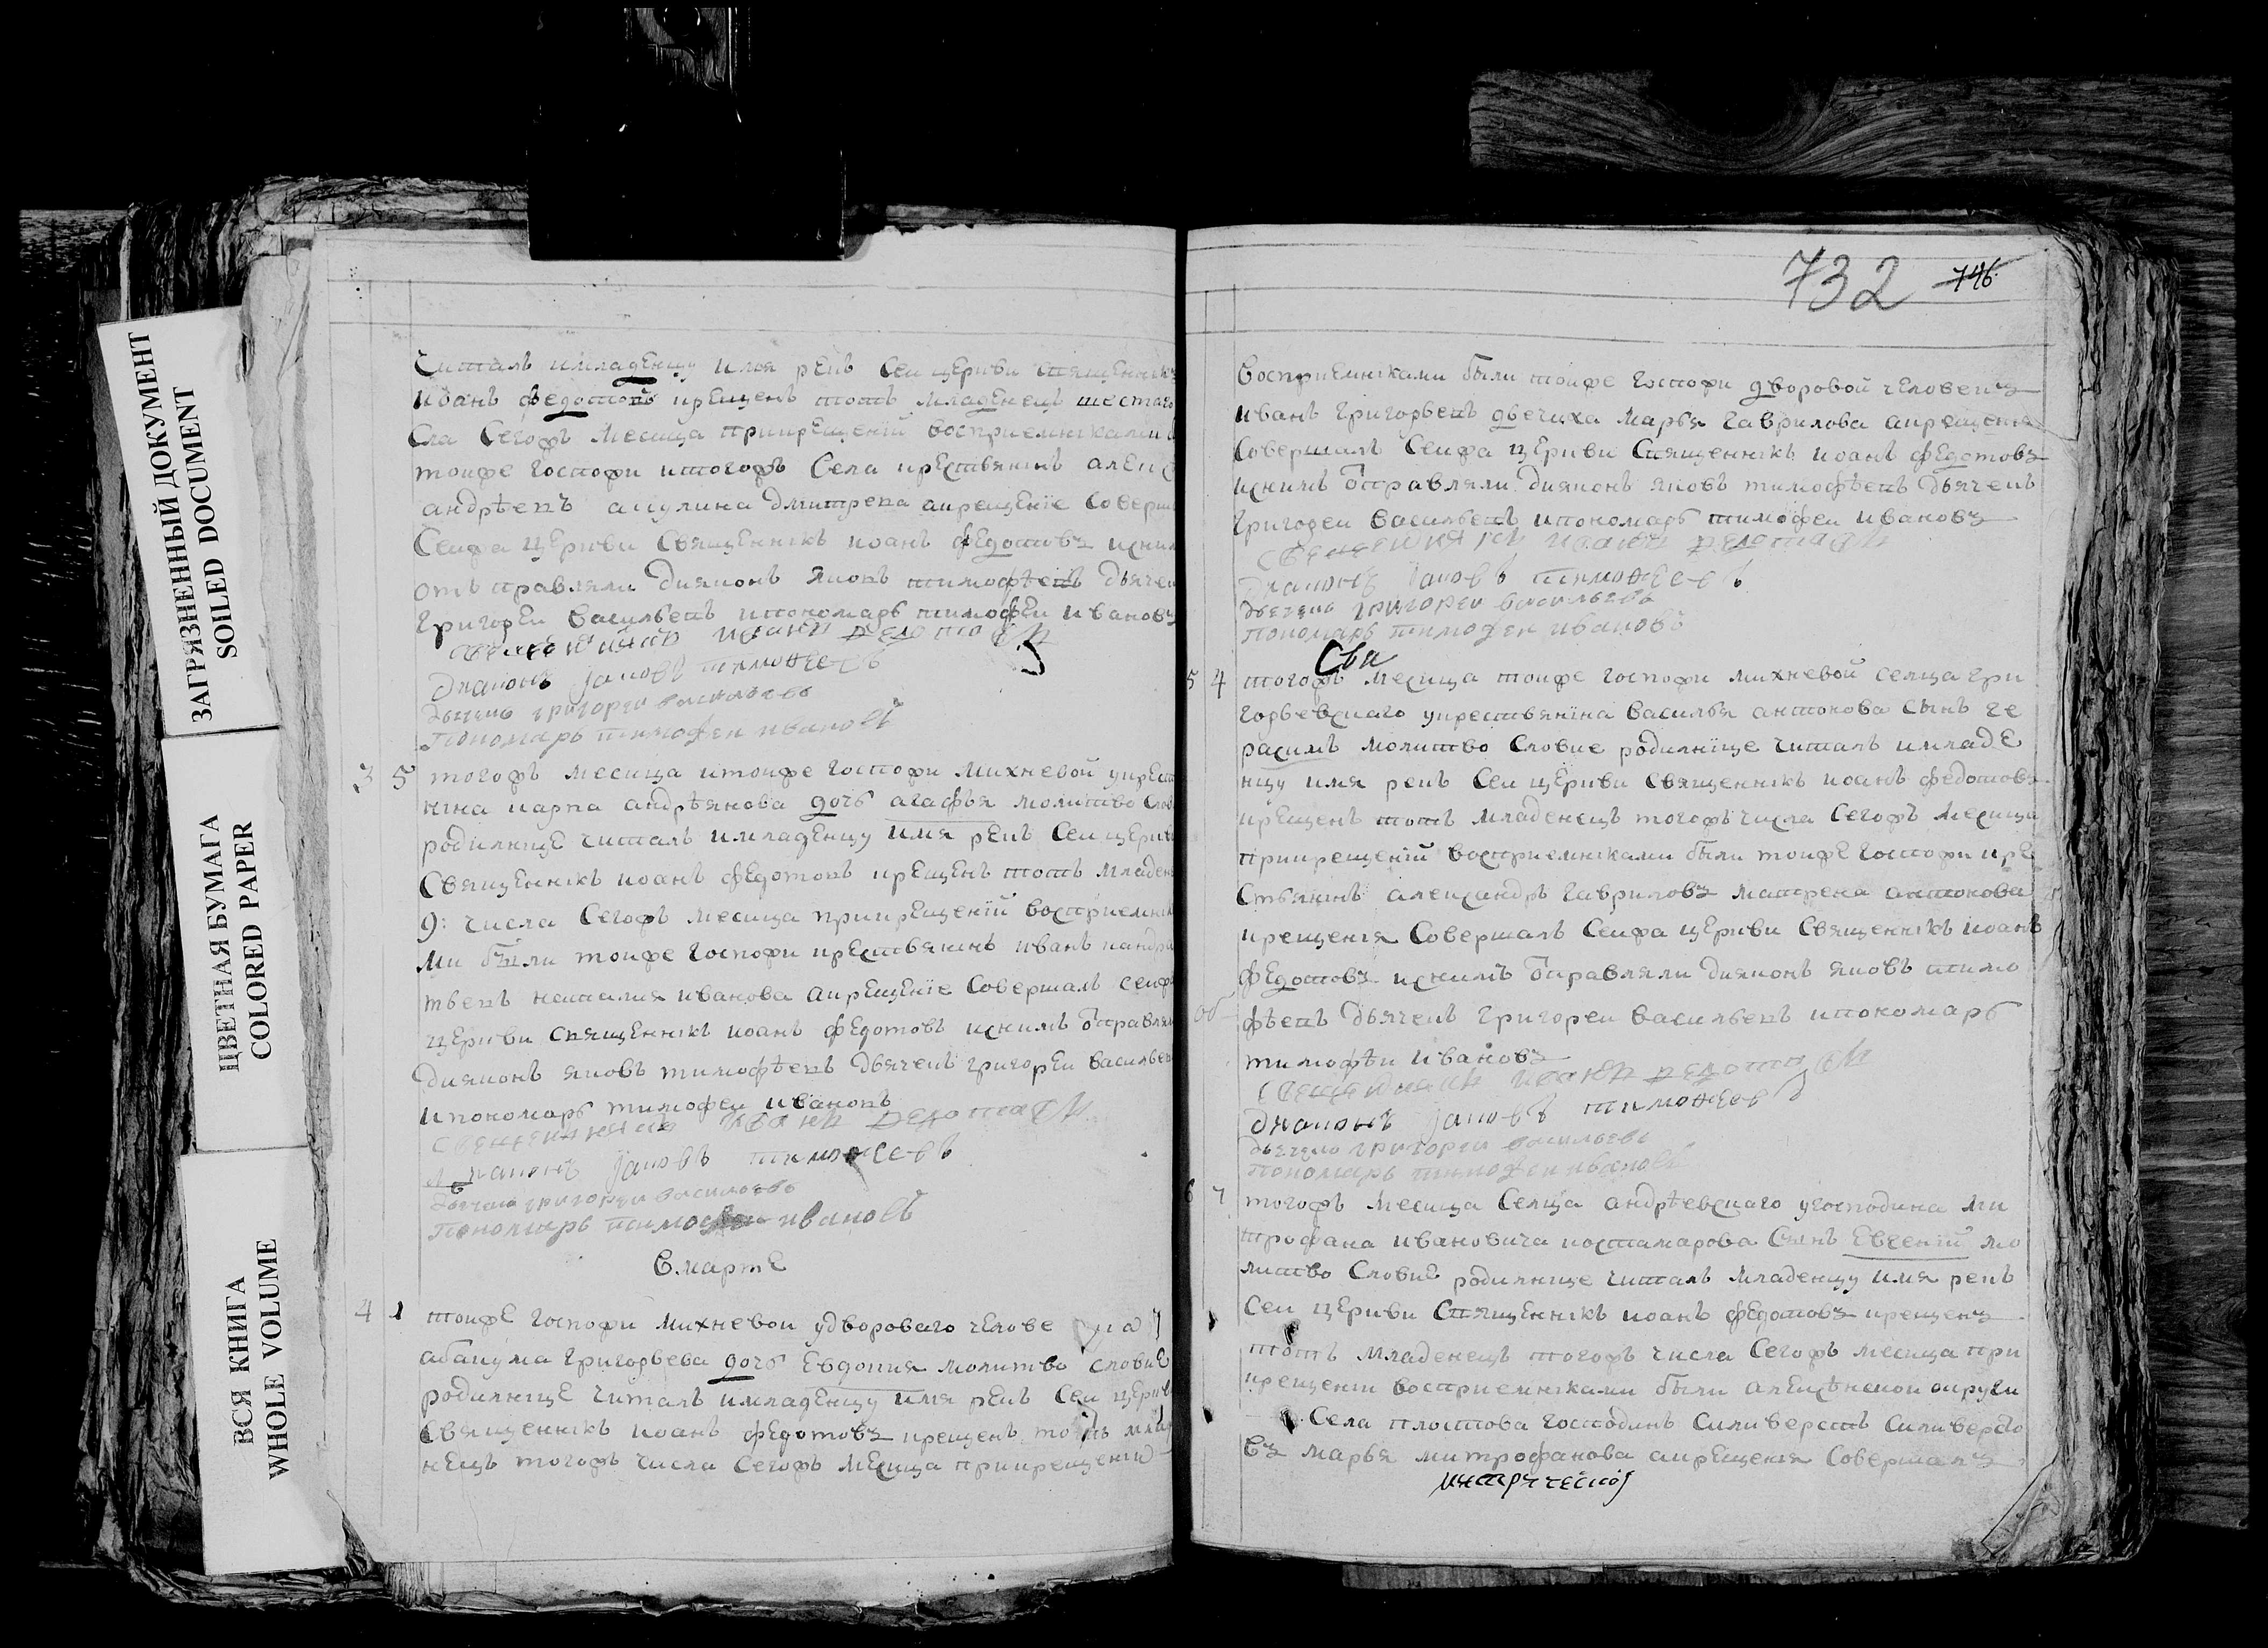 ЗАГРЯЗНЕННЫЙ ДОКУМЕНТ
SOILED DOCUMENT
ЦВЕТНАЯ БУМАГА
COLORED PAPER
ВСЯ КНИГА
WHOLE VOLUME
читалъ имладенцу имя рекъ Сеи церкви священникъ
Иванъ федотовъ крещенъ тотъ младенецъ шестаго
Сла Сегожъ месица прикрещенїи восприемниками
тоиже госпожи итогожъ Села крествянинъ алек
андрѣевъ акулина дмитрева акрещенїе Соверш
Сеижа церкви Священникъ иоанъ федотовъ исним
отъправляли дияконъ яковъ тимофѣевъ дьячек
григореи васильевъ ипономарь тимофеи ивановъ
священникъ иванъ федотовъ
диаконъ іаковъ тимофеевъ
дьячекъ григореи васильевъ
пономарь тимофеи ивановъ
3 5 тогожъ месица итоиже госпожи михневой укрест
нина карпа андрѣянова дочь агафья молитво Слов
родилнице читалъ имладенцу имя рекъ Сеи церкв
Священникъ иоанъ федотовъ крещенъ тотъ младен
9: числа Сегожъ месица прикрещенїи восприемник
ми были тоиже госпожи крествянинъ иванъ кандра
твевъ наталия иванова акрещенїе Совершалъ сеиж
церкви священникъ иоанъ федотовъ иснимъ ѿправлял
дияконъ яковъ тимофѣевъ дьячекъ григореи василье
ипономарь тимофеи ивановъ
священникъ иванъ федотовъ
диаконъ іаковъ тимофеевъ
дьячекъ григореи васильевъ
пономарь тимофеи ивановъ
в марте
4 1 тоиже госпожи михневои удвороваго челове ка
абакума григорьева дочь Евдокия молитво словие
родилнице читалъ имладенцу имя рекъ Сеи церкв
священникъ иоанъ федотовъ крещенъ тотъ млад
нецъ тогожъ числа Сегожъ месица прикрещении
732 746
восприемниками были тоиже госпожи дворовой человекъ
иванъ григорьевъ двечиха марья гаврилова акрещения
Совершалъ Сеижа церкви Священникъ иоанъ федотовъ
иснимъ ѿправляли дияконъ яковъ тимофѣевъ дьячекъ
григореи васильевъ ипономарь тимофеи ивановъ
священникъ иванъ федотовъ
диаконъ іаковъ тимофеевъ
дьячекъ григореи васильевъ
пономарь тимофеи ивановъ
Сви
5 4 тогожъ месица тоиже госпожи михневой селца гри
горьевскаго укрествянина василья антонова сынъ ге
расимъ молитво словие родилнице читалъ имладе
нцу имя рекъ Сеи церкви священникъ иоанъ федотовъ
крещенъ тотъ младенецъ тогожъ числа Сегожъ месица
прикрещенїи восприемниками были тоиже госпожи кре
ствянинъ александръ гавриловъ матрена антонова
крещения Совершалъ Сеижа церкви Священникъ иоанъ
федотовъ иснимъ ѿправляли дияконъ яковъ тимо
фѣевъ дьячекъ григореи васильевъ ипономарь
тимофѣи ивановъ
священникъ иванъ федотовъ
диаконъ іаковъ тимофеевъ
дьячекъ григореи васильевъ
пономарь тимофеи ивановъ
6 7 тогожъ месица Селца андрѣевскаго угосподина ми
трофана ивановича костамарова Сынъ Евгений мо
литво Словие родилнице читалъ младенцу имя рекъ
Сеи церкви Священникъ иоанъ федотовъ крещенъ
тотъ младенецъ тогожъ числа Сегожъ месица при
крещении восприемниками были алексѣнской округи
Села плотова господинъ Силиверстъ Силиверсто
въ марья митрофанова акрещения Совершалъ